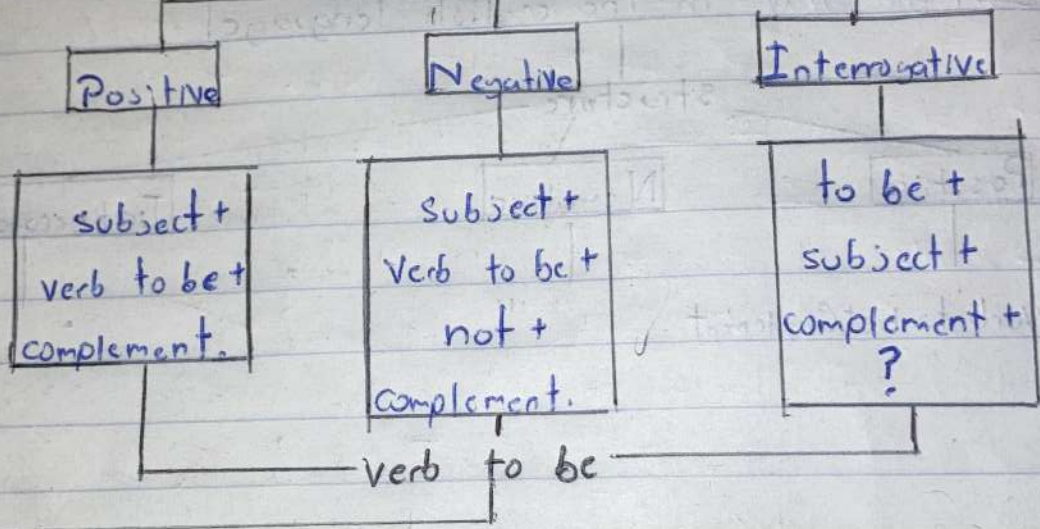 Positive
Negative
Interrogative
subject +
verb to be +
complement.
subject +
Verb to be +
not +
complement.
to be +
subject +
complement +
?
verb to be